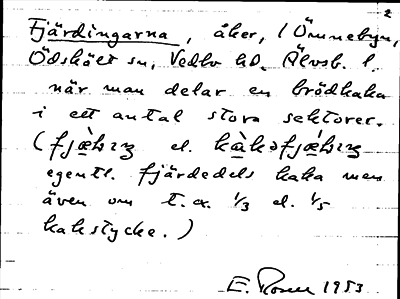 2
Fjärdingarna, åker, (Önnebyn,
Ödskölt sn, Vedbo hd, Älvsb. l.
när man delar en brödkaka
i ett antal stora sektorer.
el.
egentl. fjärdedels kaka men
även om t.ex. 1/3 el. 1/5
kakstycke.)
E. Rosen 1953